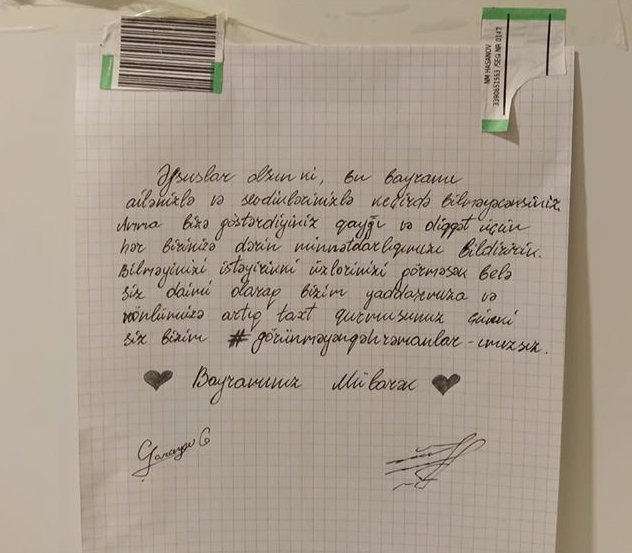 NM HASANOV
3390651553 /SEQ NR 0147
Əfsuslar olsun ki, bu bayramı
ailənizlə və sevdiklərinizlə keçirdə bilməyəcəksiniz.
Amma bizə göstərdiyiniz qayğı və diqqət üçün
hər birinizə dərin minnətdarlığımızı bildiririk.
Bilməyinizi istəyirikki üzlərinizi görməsək belə
siz daimi olaraq bizim yaddaşımıza və
könlümüzə artıq taxt qurmusunuz çünki
siz bizim #görünməyənqəhrəmanlar-ımızsız.
Bayramınız Mübarək